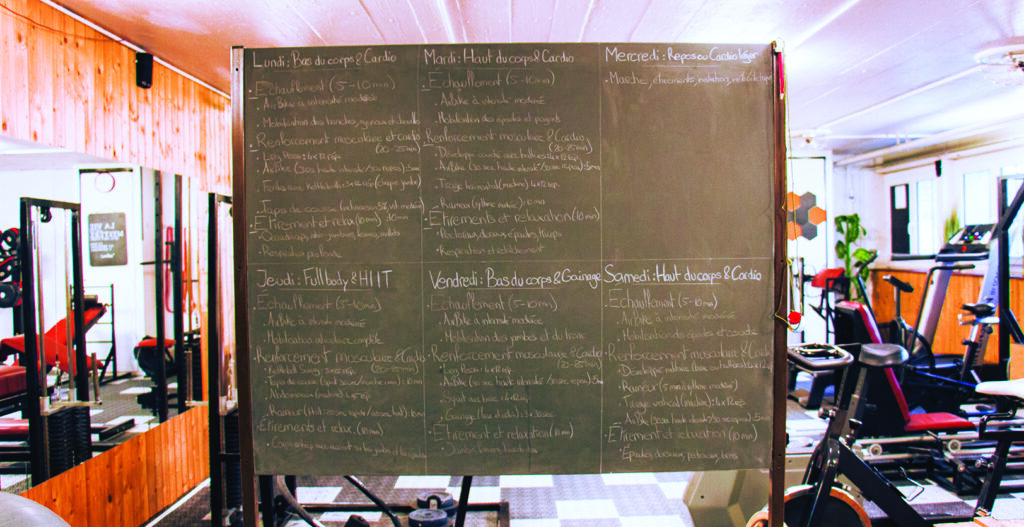 Lundi: Bas du corps & Cardio
Echauffement (5-10min)
. AirBike à intensité modérée
. Mobilisation des hanches, genoux et cheville
Renforcement musculaire et cardio
(20-25min)
. Leg Press: 4x12 rep
. AirBike (30sec haute intensité/30sec repos): 5min
. Fentes avec Kettlebells: 3x12 rep (chaque jambe)
. Tapis de course (inclinaison 5%, vit. modérée)
Étirements et relax (10min) 10min
. Respiration profonde
Mardi: Haut du corps & Cardio
Echauffement (5-10min)
. AirBike à intensité modérée
. Mobilisation des épaules et poignets
Renforcement musculaire & Cardio
(20-25min)
. Développé couché avec haltères: 4x12 rep
. AirBike (30sec haute intensité/30sec repos): 5min
. Tirage horizontal (machine) 4x12 rep
. Rameur (rythme modéré) 10min
Étirements et relaxation (10min)
. Pectoraux, dorsaux, épaules, triceps
. Respiration et
Mercredi: Repos ou Cardio léger
. Marche, étirements, natation,
Jeudi: Fullbody & HIIT
Echauffement (5-10min)
. AirBike à intensité modérée
. Mobilisation articulaire complète
Renforcement musculaire & Cardio
(20-25min)
. Kettlebell Swing:
. Tapis de course
. Rameur
Étirements et relax. (10min)
Vendredi: Bas du corps & Gainage
Echauffement (5-10min)
. AirBike à intensité modérée
. Mobilisation des jambes et du tronc
Renforcement musculaire & Cardio
(20-25min)
. Leg Press: 4x12 rep
. AirBike (30sec haute intensité/30sec repos): 5min
. Squat avec
. Gainage
Étirement et relaxation (10min)
Samedi: Haut du corps & Cardio
Echauffement (5-10min)
. AirBike à intensité modérée
. Mobilisation des épaules et coudes
Renforcement musculaire & Cardio
. Développé
. Rameur (5min rythme modéré)
. Tirage vertical (machine): 4x12 rep
. AirBike (30sec haute intensité/30sec repos): 5min
Étirement et relaxation (10min)
. Épaules, dorsaux, pectoraux,